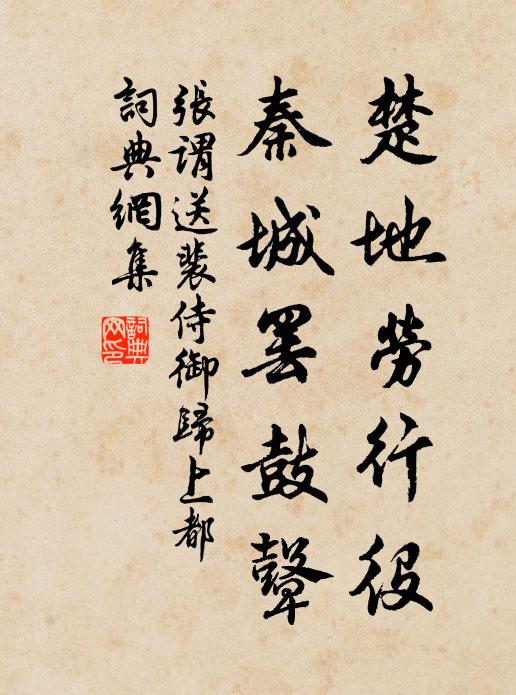 楚地勞行役
秦城罷鼓鼙
張謂送裴侍御歸上都
詞典網集
詞典網印